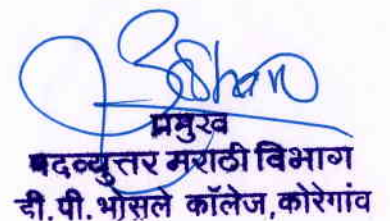 प्रमुख
पदव्युत्तर मराठी विभाग
दी.पी. भोसले कॉलेज,कोरेगांव